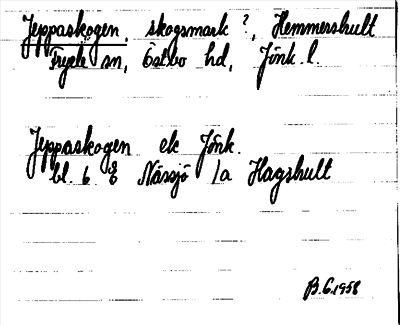 Jeppaskogen, skogsmark ?, Hemmershult
Tryele sn, Östbo hd, Jönk. l.
Jeppaskogen ek Jönk.
bl. 6 E Nässjö 1a Hagshult
B.G. 1958